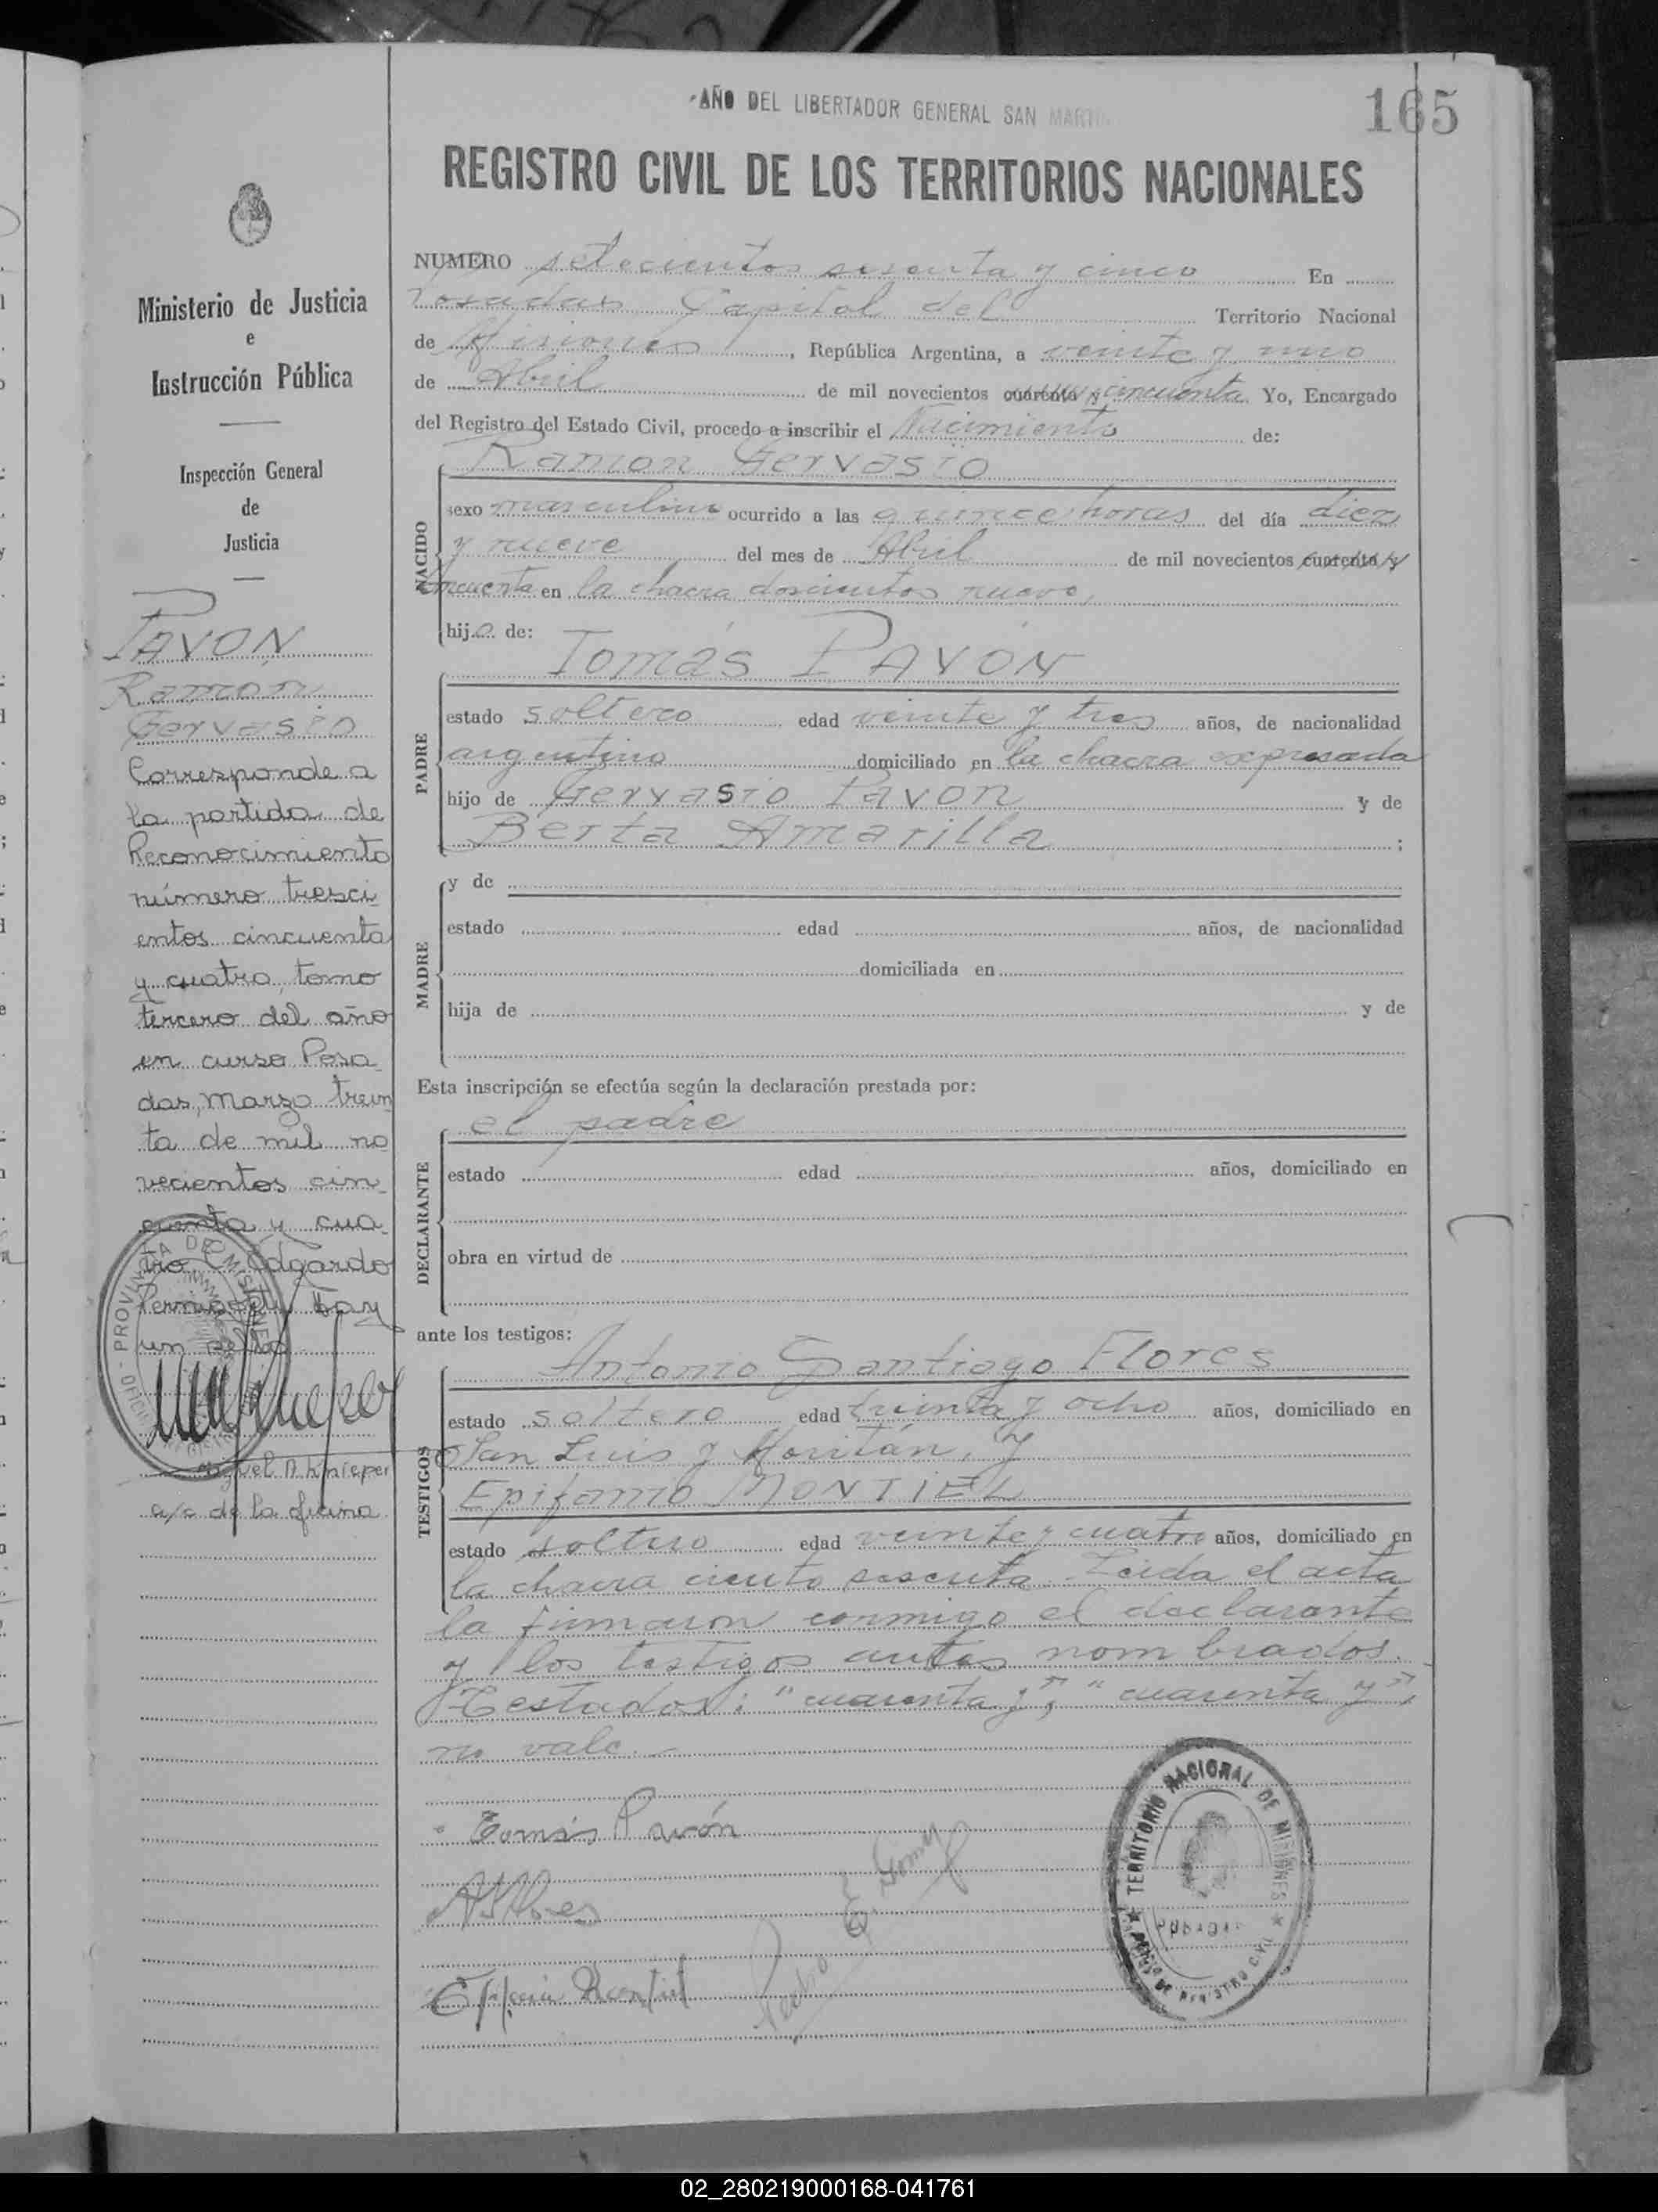 AÑO DEL LIBERTADOR GENERAL SAN MARTIN
165
REGISTRO CIVIL DE LOS TERRITORIOS NACIONALES
Ministerio de Justicia
e
Instrucción Pública
Inspección General
de
Justicia
PAVON
Ramon
Gervasio
Corresponde a
la partida de
Reconocimiento
número tresci-
entos cincuenta
y cuatro, tomo
tercero del año
en curso Posa
das, Marzo trein
ta de mil no
vecientos cin-
cuenta y cua-
tro Edgardo
hay
un sello
a/c de la oficina
NUMERO setecientos sesenta y cinco En
Posadas Capital del Territorio Nacional
de Misiones, República Argentina, a veinte y uno
de Abril de mil novecientos cuarenta y cincuenta Yo, Encargado
del Registro del Estado Civil, procedo a inscribir el Nacimiento de:
Ramon Gervasio
NACIDO
sexo masculino ocurrido a las quince horas del día diez
y nueve del mes de Abril de mil novecientos cuarenta y
cincuenta en la chacra doscientos nueve,
hijo de:
Tomás PAVON
PADRE
estado soltero edad veinte y tres años, de nacionalidad
argentino domiciliado en la chacra expresada
hijo de Gervasio Pavon y de
Berta Amarilla ;
MADRE
y de
estado edad años, de nacionalidad
domiciliada en
hija de y de
Esta inscripción se efectúa según la declaración prestada por:
el padre
DECLARANTE
estado edad años, domiciliado en
obra en virtud de
ante los testigos:
Antonio Santiago Flores
TESTIGOS
estado soltero edad treinta y ocho años, domiciliado en
San Luis y Moritán, y
Epifanio MONTIEL
estado soltero edad veinte y cuatro años, domiciliado en
la chacra ciento sesenta. Leida el acta
la firmaron conmigo el declarante
y los testigos antes nombrados.
Testados: "cuarenta y", "cuarenta y",
no vale.-
Tomás Pavón
ASFlores
Epifanio Montiel
Pedro E. Gomez
TERRITORIO NACIONAL DE MISIONES
POSADAS
REGISTRO CIVIL
PROVINCIA DE MISIONES
02_280219000168-041761